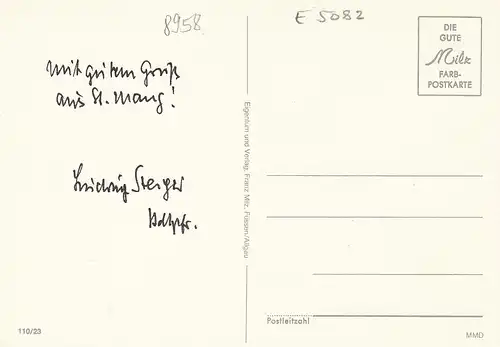 8958
E 5082
DIE
GUTE
Milz
FARB-
POSTKARTE
mit gutem Gruß
aus St. Mang!
Ludwig Steiger
Stdtpfr.
Eigentum und Verlag, Franz Milz, Füssen/Allgäu
Postleitzahl
110/23
MMD